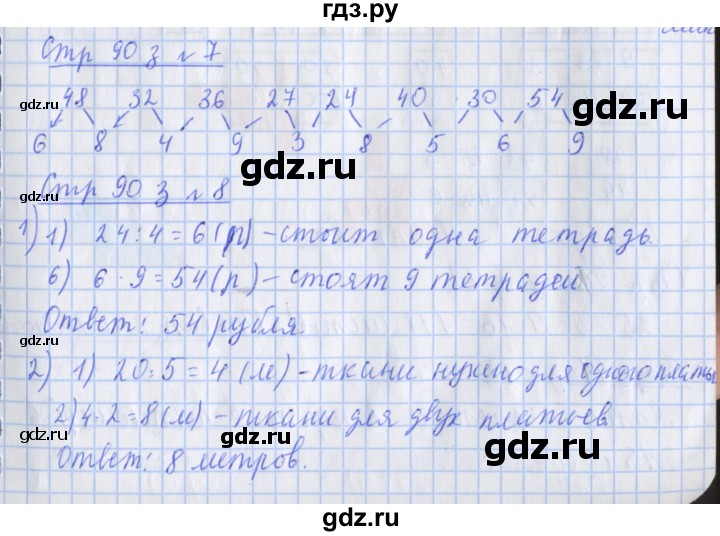 гдз.ру
Стр 90 з № 7
48 32 36 27 24 40 30 54
6 8 4 9 3 8 5 6 9
Стр 90 з № 8
1) 1) 24:4=6(р) – стоит одна тетрадь.
б) 6·9=54(р) – стоят 9 тетрадей
Ответ: 54 рубля
2) 1) 20:5=4(м) – ткани нужно для одного платья
2) 4·2=8(м) – ткани для двух платьев.
Ответ: 8 метров.
gdz.ru
gdz.ru
gdz.ru
gdz.ru
gdz.ru
gdz.ru
gdz.ru
gdz.ru
gdz.ru
gdz.ru
gdz.ru
gdz.ru